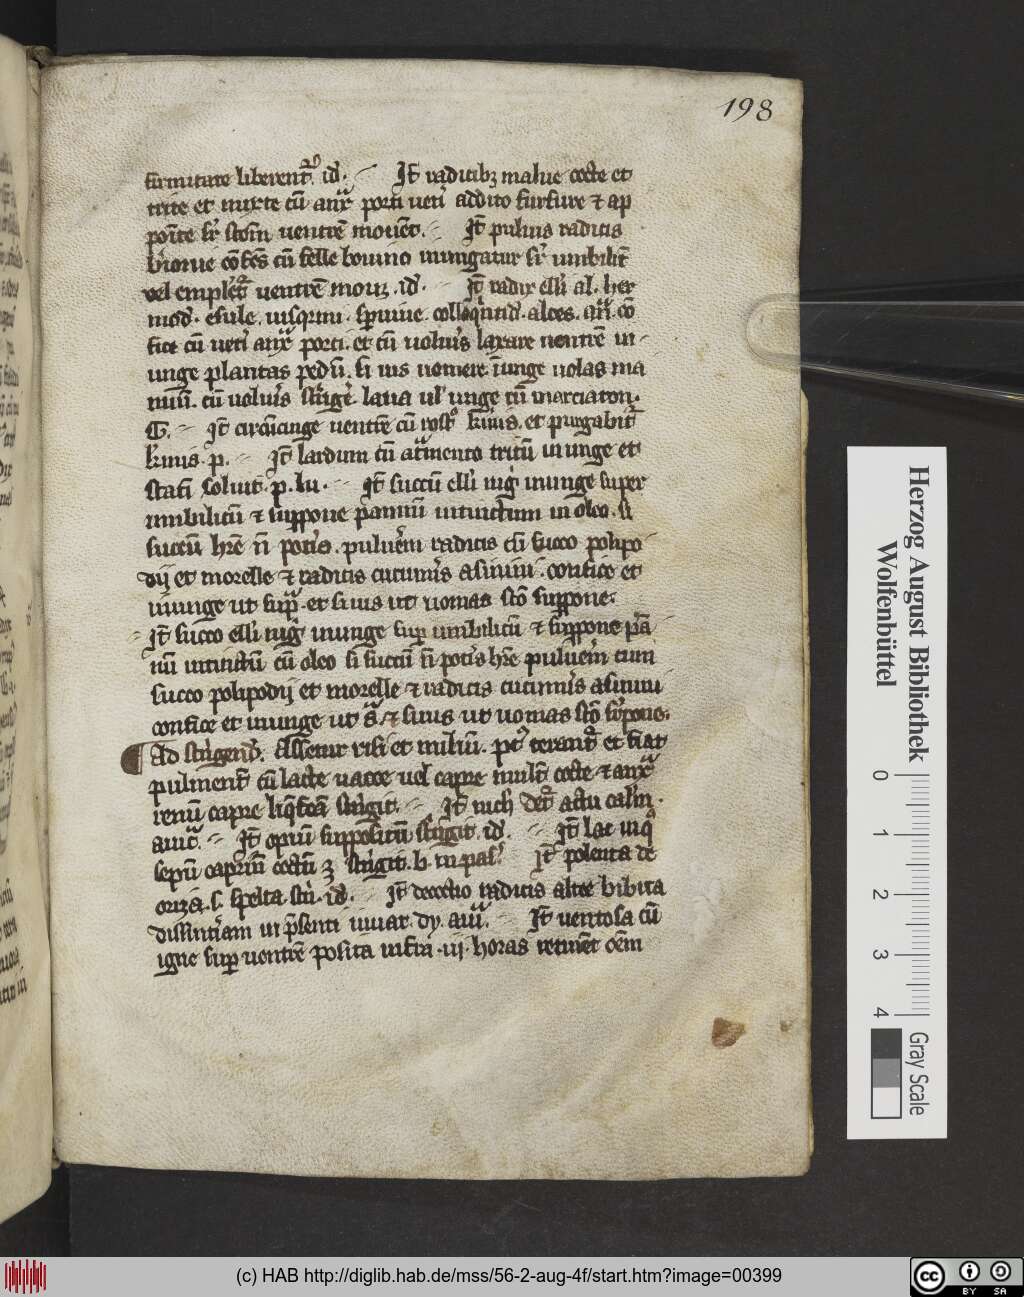 198
firmitate liberent᷑. id̕. It̄ radicibꝫ malue cocte et
trite et mixte cū anx̄ porci uet̕i addito furfure ⁊ ap
poīte sr̄ stom̄ uentrē mouēt. It̄ puluis radicis
brionie cōfc̄s cū felle bouino inungatur sr̄ umbilic̄
vel empletr̄ uentrē mouꝫ. id̕. It̄ radix ell̕i al. her
mod̕. esule.
fice cū uet̕i anx̄ porci. et cū uolu̕is laxare uentrē in
unge plantas pedū. si uis uomere īunge uolas ma
nuū. cū uolu̕is st̕ige̕. laua ul̕ unge cū marciaton.
G. It̄ circūcinge uentrē cū et purgabit̄
p. It̄ lardum cū at̄mento tritū inunge et
statī soluit. p. lu. It̄ succū ell̕i nig̕ inunge super
umbilicū ⁊ suppone pannū intinctum in oleo. si
succū hr̄e n̄ pot̕is. pulu̕em radicis cū succo polipo
dij et morelle ⁊ radicis cucum̕is asinini. confice et
inunge ut sup̄. et si uis ut uomas stō suppone.
It̄ succo ell̕i nig̕ inunge sup umbilicū ⁊ suppone pā
nū intinctū cū oleo si succū n̄ pot̕is hr̄e pulu̕em cum
succo polipodij et morelle ⁊ radicis cucum̕is asinini
confice et inunge ut sā ⁊ si uis ut uomas stō sr̄pone.
Ad st̕igend̕. Assetur risi et miliū. pꝰ terant᷑ et fiat
pulment̄ cū lacte uacce uel capre mult̄ cocte ⁊ anx̄
renū capre liq̄fcā st̕igit. It̄ det᷑
auic̄. It̄ opiū suppositū st̕igit. id̕. It̄ lac inq̊
sepū caprin̄ coctū ꝫ st̕igit. It̄ polenta de
oriza. s. spelta st̕i. id̕. It̄ decoctio radicis altee bibita
dissint̕iam in p̄senti iuuat. dy. auī. It̄ uentosa cū
igne sup uentrē posita infra .iij. horas retinēt oēm
Herzog August Bibliothek
Wolfenbüttel
0 1 2 3 4
Gray Scale
(c) HAB http://diglib.hab.de/mss/56-2-aug-4f/start.htm?image=00399
cc BY SA